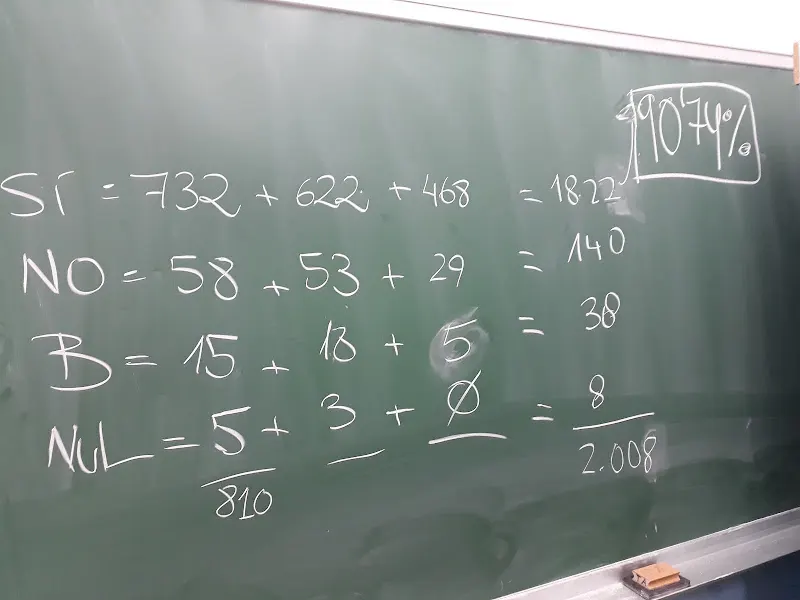 90'74%
SÍ = 732 + 622 + 468 = 1822
NO = 58 + 53 + 29 = 140
B = 15 + 18 + 5 = 38
NUL = 5 + 3 + Ø = 8
810 2.008